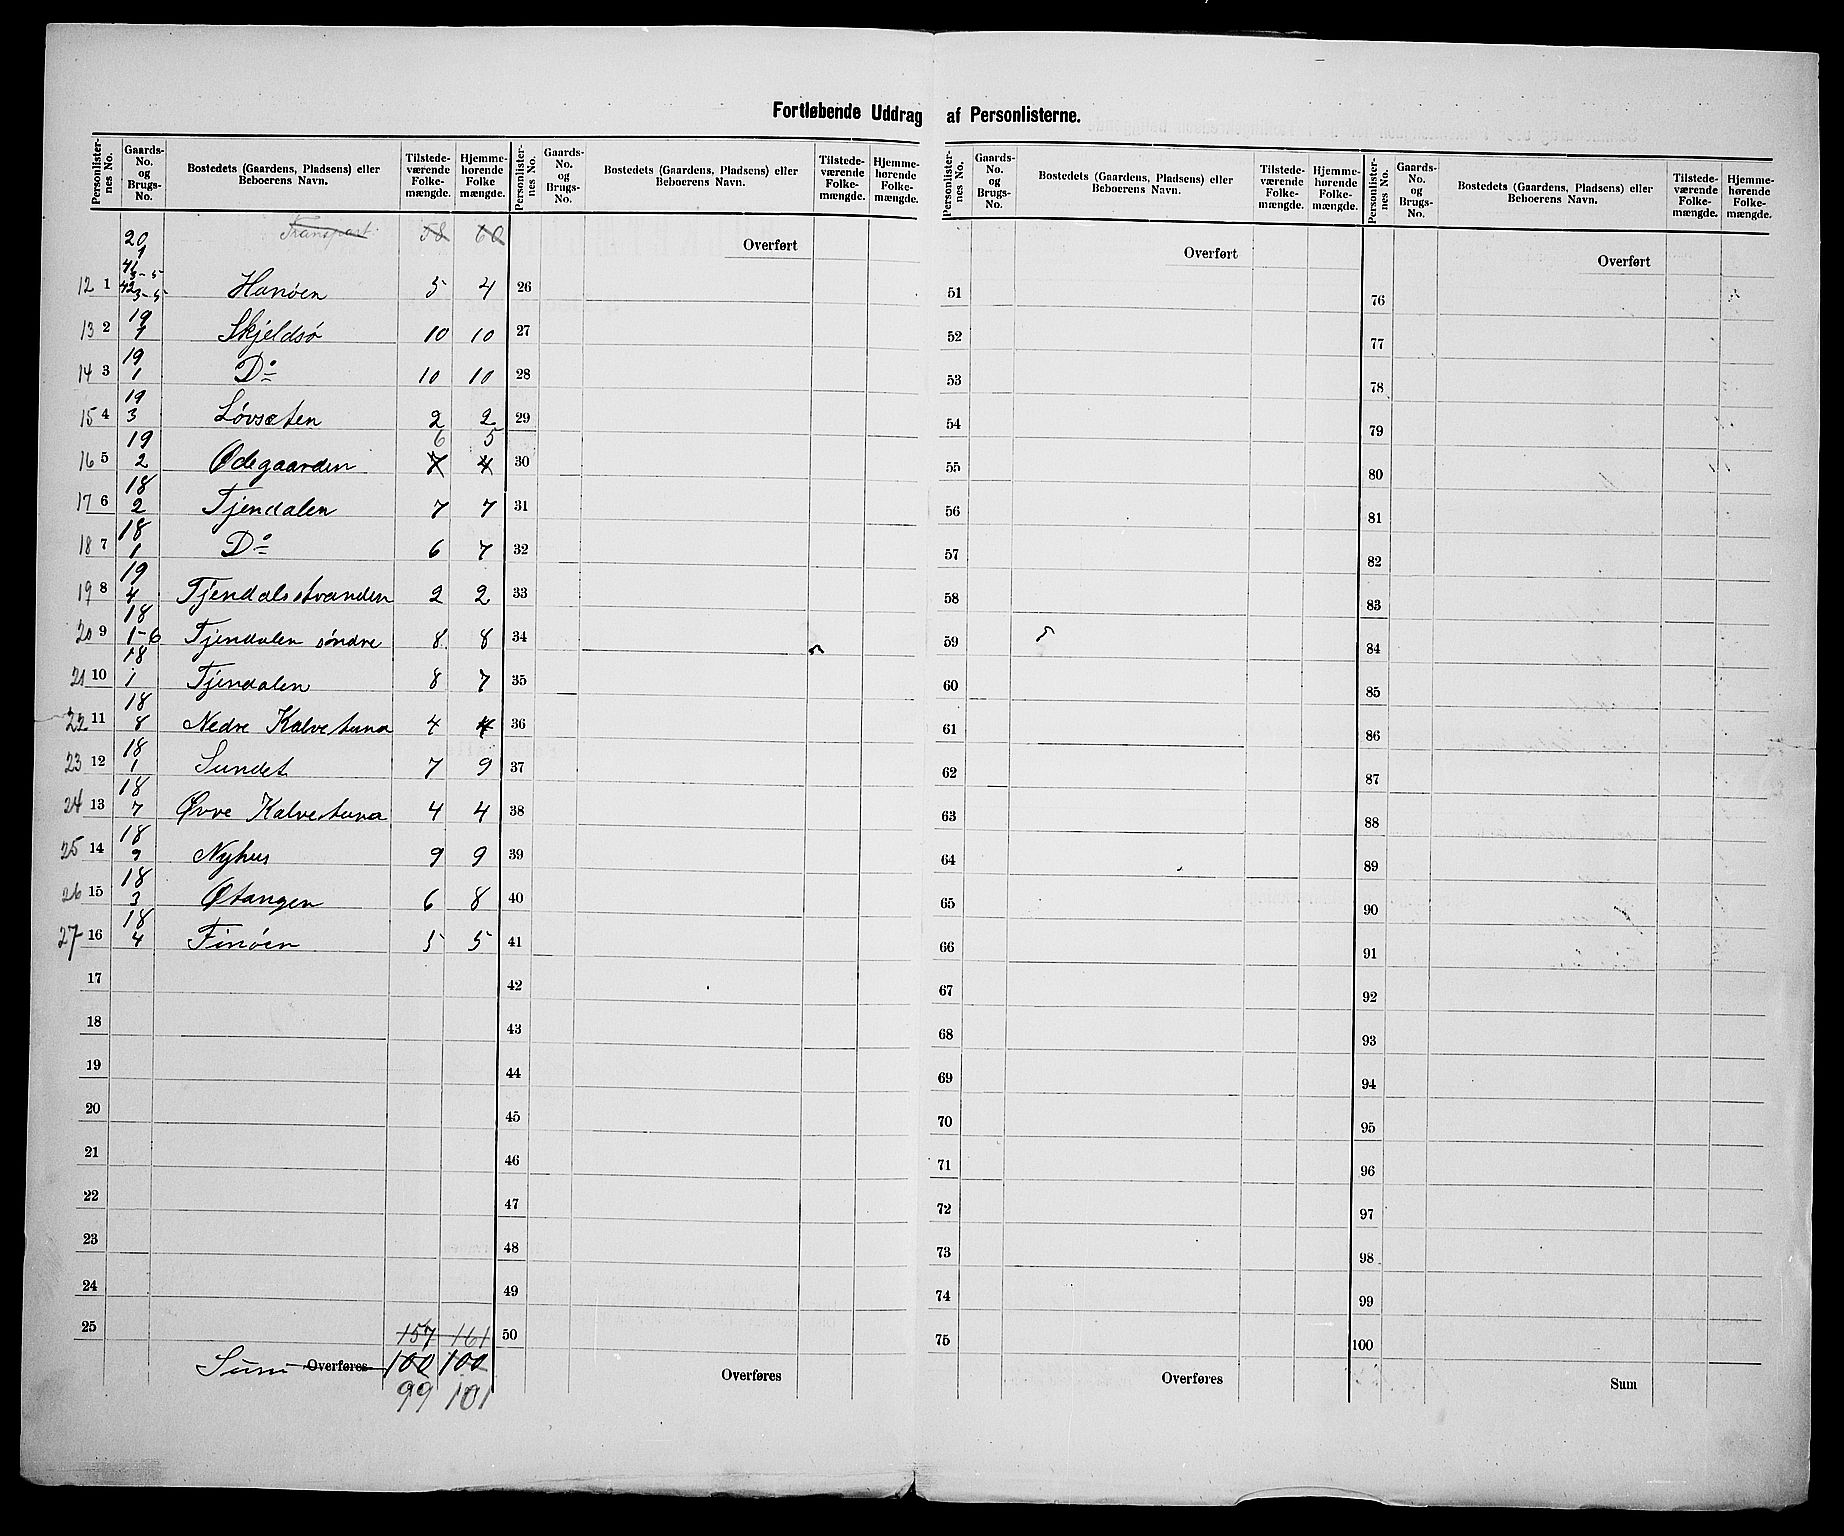 Fortløbende Uddrag af Personlisterne.
Personlister-nes No. | Gaards-No. og Brugs-No. | Bostedets (Gaardens, Pladsens) eller Beboerens Navn. | Tilstede-værende Folke-mængde. | Hjemme-hørende Folke mængde.
Transport 58 60
12 1 20 1 41 3-5 42 3-5 Hanöen 5 4
13 2 19 1 Skjeldsø 10 10
14 3 19 1 Do 10 10
15 4 19 3 Lövsæten 2 2
6 5
16 5 19 2 Ødegaarden 7 4
17 6 18 2 Tjendalen 7 7
18 7 18 1 Do 6 7
19 8 19 4 Tjendalsstranden 2 2
20 9 18 1-6 Tjendalen söndre 8 8
21 10 18 1 Tjendalen 8 7
22 11 18 8 Nedre Kalvetuna 4 4
23 12 18 1 Sundet 7 9
24 13 18 7 Øvre Kalvetuna 4 4
25 14 18 9 Nyhus 9 9
26 15 18 3 Øtangen 6 8
27 16 18 4 Finöen 5 5
17
18
19
20
21
22
23
24
25 157 161
Sum Overføres 100 100
99 101
Personlister-nes No. | Gaards-No. og Brugs-No. | Bostedets (Gaardens, Pladsens) eller Beboerens Navn. | Tilstede-værende Folke-mængde. | Hjemme-hørende Folke-mængde.
Overført
26
27
28
29
30
31
32
33
34
35
36
37
38
39
40
41
42
43
44
45
46
47
48
49
50
Overføres
Personlister-nes No. | Gaards-No. og Brugs-No. | Bostedets (Gaardens, Pladsens) eller Beboerens Navn. | Tilstede-værende Folke-mængde. | Hjemme-hørende Folke-mængde.
Overført
51
52
53
54
55
56
57
58
59
60
61
62
63
64
65
66
67
68
69
70
71
72
73
74
75
Overføres
Personlister-nes No. | Gaards-No. og Brugs-No. | Bostedets (Gaardens, Pladsens) eller Beboerens Navn. | Tilstede-værende Folke-mængde. | Hjemme-hørende Folke-mængde.
Overført
76
77
78
79
80
81
82
83
84
85
86
87
88
89
90
91
92
93
94
95
96
97
98
99
100
Sum